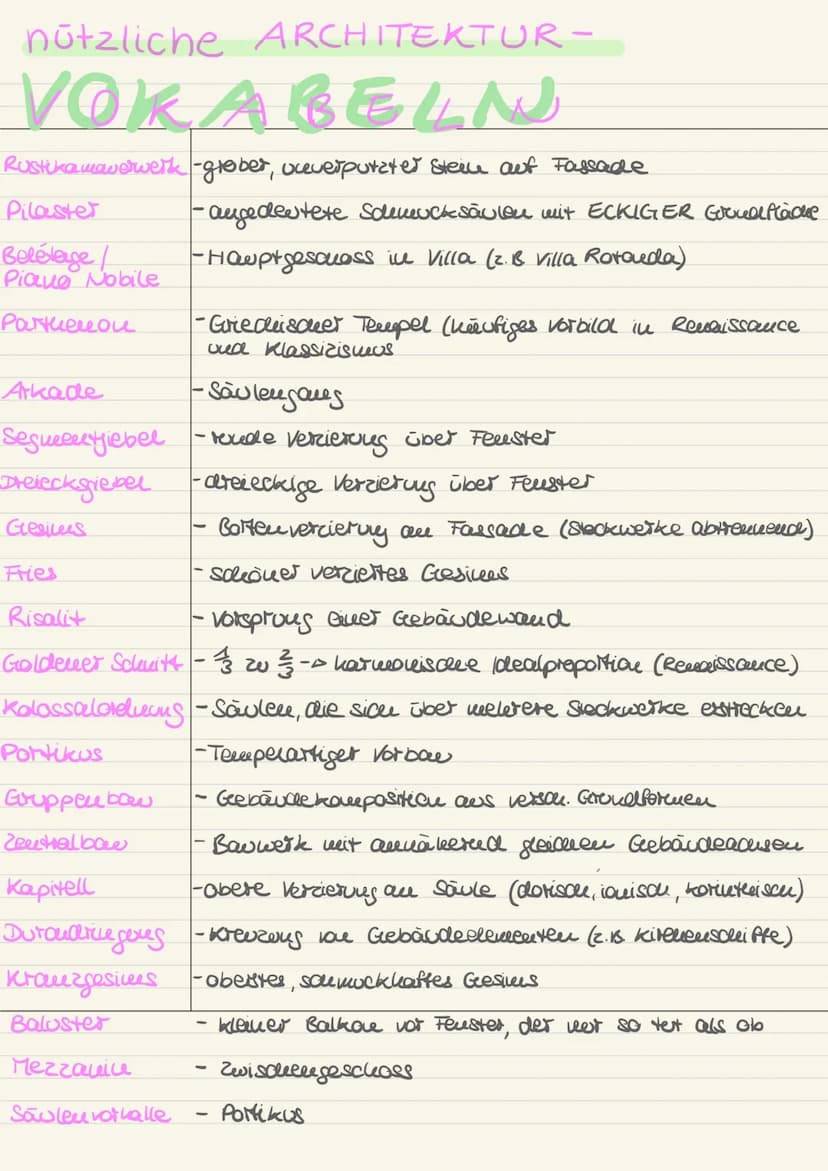 nützliche ARCHITEKTUR-
VOKABELN
Rustikamauerwerk - grober, unverputzter Stein auf Fassade
Pilaster - angedeutete Schmucksäulen mit ECKIGER Grundfläche
Belétage / - Hauptgeschoss in Villa (z.B Villa Rotonda)
Piano Nobile
Parthenon - Griechischer Tempel (häufiges Vorbild in Renaissance
und Klassizismus
Arkade - Säulengang
Segmentgiebel - runde Verzierung über Fenster
Dreiecksgiebel - dreieckige Verzierung über Fenster
Gesims - Bortenverzierung an Fassade (Stockwerke abtrennend)
Fries - schöner verziertes Gesims
Risalit - Vorsprung einer Gebäudewand
Goldener Schnitt - 1/3 zu 2/3 -> harmonische Idealproportion (Renaissance)
Kolossalordnung - Säulen, die sich über mehrere Stockwerke erstrecken
Portikus - Tempelartiger Vorbau
Gruppenbau - Gebäudekomposition aus versch. Grundformen
Zentralbau - Bauwerk mit annähernd gleichen Gebäudeachsen
Kapitell - obere Verzierung an Säule (dorisch, ionisch, korinthisch)
Durchdringung - Kreuzung von Gebäudeelementen (z.B Kirchenschiffe)
Kranzgesims - oberstes, schmuckhaftes Gesims
Baluster - kleiner Balkon vor Fenster, der nur so tut als ob
Mezzanin - Zwischengeschoss
Säulenvorhalle - Portikus